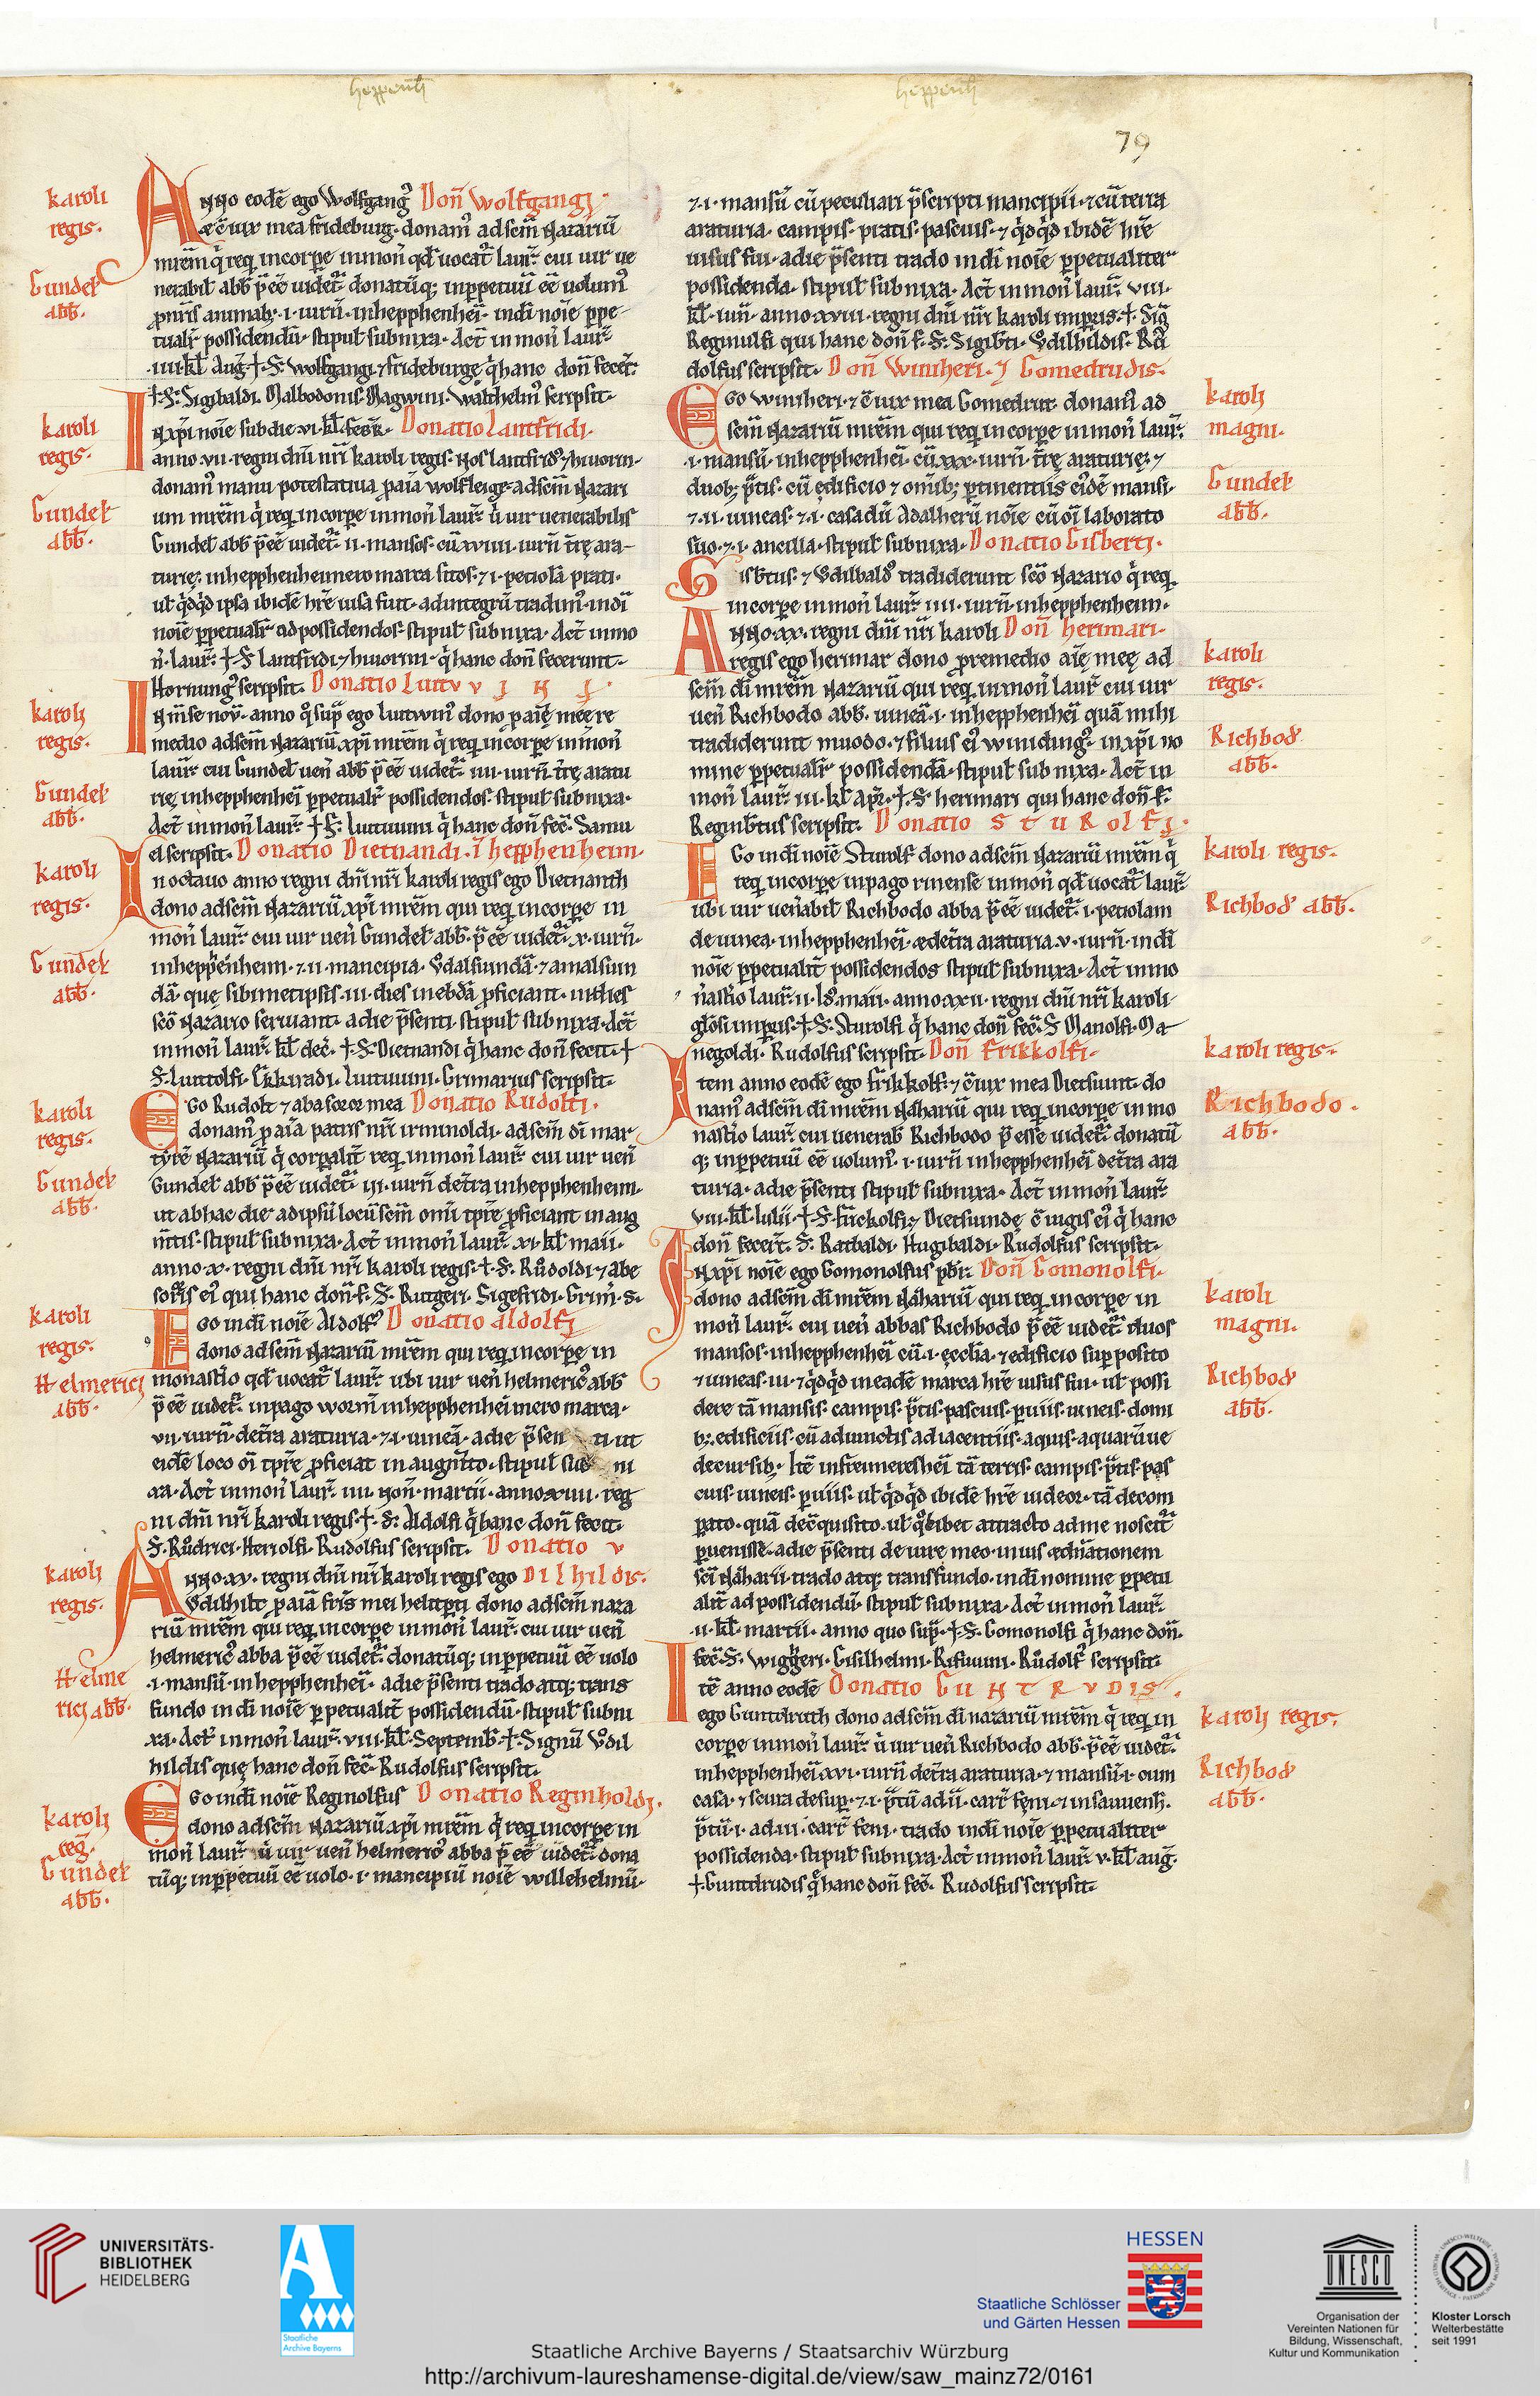 heppenh̄ heppenh̄
79
Anno eodē ego Wolfgangꝰ Don̄ Wolfgangi.
mea frideburg. donamꝰ ad sc̄m Nazariū
mr̄em q̇ req̇ in corpe in mon̄ qd̄ uocat᷑ laur̄. cui uir ue
nerabil̄ abb̄ p̄ ēē uidet᷑. donatūq; inp̱petuū ēē uolumꝰ
animab;. i. iurn̄. in hepphenheī. in dī nōie p̱pe
tualit̄ possidendū. stipul̄ subnixa. Act̄ in mon̄ laur̄
.iiii. kl̄ Auḡ. ✝ S. Wolfgangi ⁊ frideburge q̇ hanc don̄ fecer̄.
✝ S. Sigibaldi. Malbodonis. Magwini. Walthelmꝰ scripsit.
In xp̄i nōie sub die vi. kl̄. febr̄. Donatio Lantfridi.
anno vii. regni dn̄i nr̄i karoli regis. Nos lantfridꝰ ⁊ huorin.
donamꝰ manu potestatiua p̱ aīa wolfleige. ad sc̄m Nazari
um mr̄em q̇ req̇ in corpe in mon̄ laur̄. u̇ uir uenerabilis
Gundel̄ abb̄ p̄ ēē uidet᷑. ii. mansos. cū xviiii. iurn̄ tr̄ę ara
turię. in hepphenheimero marca sitos. ⁊ i. peciolā prati.
ul̄ q̇dq̇d ipsa ibidē hr̄e uisa fuit. ad integrū tradimꝰ. in dī
nōie p̱petualit̄ ad possidendos. stipul̄ subnixa. Act̄ in mo
n̄. laur̄. ✝ S. lantfridi ⁊ huorin. q̇ hanc don̄ fecerunt.
Hornungꝰ scripsit. Donatio Luitvvini.
In m̄se nov̄. anno q̊ sup̄ ego luitwinꝰ dono p̱ aīę meę re
medio ad sc̄m Nazariū xp̄i mr̄em q̇ req̇ in corpe in mon̄
laur̄. cui Gundel̄ uen̄ abb̄ p̄ ēē uidet᷑. iiii. iurn̄. tr̄ę aratu
rię in hepphenheī p̱petualit̄ possidendos. stipul̄ subnixa.
Act̄ in mon̄ laur̄. ✝ S. luituuini q̇ hanc don̄ fec̄. Samu
el scripsit. Donatio Dietnandi. ī hepphenheim.
In octauo anno regni dn̄i nr̄i karoli regis ego Dietnanth
dono ad sc̄m Nazariū xp̄i mr̄em qui req̇ in corpe in
mon̄ laur̄. cui uir uen̄ Gundel̄ abb̄. p̄ ēē uidet᷑. x. iurn̄.
in hepphenheim. ⁊ ii. mancipia. ůdalsundā. ⁊ amalsuin
dā. quę sibimetipsis. iii. dies in ebdā p̱ficiant. iii dies
sc̄o Nazario seruiant. a die p̄senti. stipul̄ subnixa. Act̄
in mon̄ laur̄. kl̄ dec̄. ✝ S. Dietnandi q̇ hanc don̄ fecit. ✝
S. luitolfi. Ekkiradi. luituuini. Grimarius scripsit.
Ego Rudolt ⁊ aba soror mea Donatio Rudolti.
donamꝰ p̱ aīa patris nr̄i irminoldi. ad sc̄m dī mar
tyrē Nazariū q̇ corpalit̄ req̇ in mon̄ laur̄. cui uir uen̄
Gundel̄ abb̄ p̄ ēē uidet᷑. iii. iurn̄ de tr̄a in hepphenheim.
ut ab hac die ad ipsū locū sc̄m om̄i tp̱r̄e p̱ficiant in aug
m̄tis. stipul̄ subnixa. Act̄ in mon̄ laur̄. xi. kl̄ maii.
anno x. regni dn̄i nr̄i karoli regis. ✝ S. Růdoldi ⁊ abe
soŕis eiꝰ qui hanc don̄ f. S. Rutgeri. Sigefridi. Grim̄. s.
Ego in dī nōie Aldolfꝰ Donatio aldolfi
dono ad sc̄m Nazariū mr̄em qui req̇ in corpe in
monast̄io qd̄ uocat᷑ laur̄. ubi uir uen̄ helmericꝰ abb̄
p̄ ēē uidet᷑. in pago worm̄ in hepphenheimero marca.
vii. iurn̄ de tr̄a araturia. ⁊ i. uineā. a die p̄sen ti ut
eidē loco om̄i tp̱r̄e p̱ficiat in augm̄to. stipul̄ sub ni
xa. Act̄ in mon̄ laur̄. iiii. Non̄. martii. anno xiiii. reg
ni dn̄i nr̄i karoli regis. ✝ S. Aldolfi q̇ hanc don̄ fecit.
S. Růdrici. Heriolfi. Rudolfus scripsit. Donatio v
Anno. xv. regni dn̄i nr̄i karoli regis ego dilhildis.
Vdilhilt p̱ aīā fr̄is mei helitp̱ti dono ad sc̄m naza
riū mr̄em qui req̇ in corpe in mon̄ laur̄. cui uir uen̄
helmericꝰ abba p̄ ēē uidet᷑. donatūq; inp̱petuū ēē uolo
.i. mansū in hepphenheī. a die p̄senti trado atq; trans
fundo in dī nōie p̱petualit̄ possidendū. stipul̄ subni
xa. Act̄ in mon̄ laur̄. viii. kl̄ Septemb̄. ✝ Signū Vodil
hildis quę hanc don̄ fec̄. Rudolfus scripsit.
Ego in dī nōie Reginolfus Donatio Reginholdi.
dono ad sc̄m Nazariū xp̄i mr̄em q̇ req̇ in corpe in
mon̄ laur̄. u̇ uir uen̄ helmericꝰ abba p̄ ēē uidet᷑. dona
tūq; inp̱petuū ēē uolo. i. mancipiū nōie willehelmū.
karoli
regis.
Gundel̄
abb̄.
karoli
regis.
Gundel̄
abb̄.
karoli
regis.
Gundel̄
abb̄.
karoli
regis.
Gundel̄
abb̄.
karoli
regis.
Gundel̄
abb̄.
karoli
regis.
Helmerici
abb̄.
karoli
regis.
Helme
rici abb̄.
karoli
reḡ.
Gundel̄
abb̄.
⁊ i. mansū cū peculiari p̄scripti mancipii. ⁊ cū terra
araturia. campis. pratis. pascuis. ⁊ q̇dq̇d ibidē hr̄e
uisus fui. a die p̄senti trado in dī nōie p̱petualiter
possidenda. stipul̄ subnixa. Act̄ in mon̄ laur̄. viii.
kl̄. iun̄. anno xviii. regni dn̄i nr̄i karoli imp̱is. ✝ Sig̅
Reginulfi qui hanc don̄ f. S. Sigib̄ti. Vdilhildis. Rů
dolfus scripsit. Don̄ Winiheri. ⁊ Gomedrudis.
Ego winiheri. ⁊ c̄iux mea Gomedrut donamꝰ ad
sc̄m Nazariū mr̄em qui req̇ in corpe in mon̄ laur̄.
.i. mansū. in hepphenheī. cū xxx. iurn̄. tr̄ę araturię. ⁊
duob; p̄tis. cū edificio ⁊ om̄ib; p̱tinentiis ei᷑dē mansi.
⁊ ii. uineas. ⁊ i. casadū Adalherū nōie cū om̄i laborato
suo. ⁊ i. ancilla. stipul̄ subnixa. Donatio Gisberti.
Gisb̄tus. ⁊ Vdilbaldꝰ tradiderunt sc̄o Nazario q̇ req̇
in corpe in mon̄ laur̄. iiii. iurn̄. in hepphenheim.
Anno. xx. regni dn̄i nr̄i karoli Don̄ herimari.
regis ego herimar dono p̱ remedio aīę meę ad
sc̄m dī mr̄em Nazariū qui req̇ in mon̄ laur̄. cui uir
uen̄ Richbodo abb̄. uineā. i. in hepphenheī quā mihi
tradiderunt muodo. ⁊ filius eiꝰ winidingꝰ. in xp̄i no
mine p̱petualit̄ possidendā. stipul̄ subnixa. Act̄ in
mon̄ laur̄. iii. kl̄ Apr̄. ✝ S. herimari qui hanc don̄ f.
Reginb̄tus scripsit. Donatio Sturolfi.
Ego in dī nōie Sturolf dono ad sc̄m Nazariū mr̄em q̇
req̇ in corpe in pago rinense in mon̄ qd̄ uocat᷑ laur̄
ubi uir uen̄abil̄ Richbodo abba p̄ ēē uidet᷑. i. peciolam
de uinea. in hepphenheī. ⁊ de tr̄a araturia. v. iurn̄. in dī
nōie p̱petualit̄ possidendos stipul̄ subnixa. Act̄ in mo
nast̄io laur̄. ii. Id̄. maii. anno xxii. regni dn̄i nr̄i karoli
gl̄osi imp̱is. ✝ S. Sturolfi q̇ hanc don̄ fec̄. S Manolfi. Ma
negoldi. Rudolfus scripsit. Don̄ Frikkolfi.
Item anno eodē ego frikkolf. ⁊ c̄iux mea Dietsuint. do
namꝰ ad sc̄m dī mr̄em Nahariū qui req̇ in corpe in mo
nast̄io laur̄. cui uenerab̄ Richbodo p̄ esse uidet᷑. donatū
q; inp̱petuū ēē uolumꝰ. i. iurn̄ in hepphenheī de tr̄a ara
turia. a die p̄senti stipul̄ subnixa. Act̄ in mon̄ laur̄
viii. kl̄. Iulii. ✝ S. frickolfi ⁊ Dietsuinde c̄iugis eiꝰ q̇ hanc
don̄ fecer̄. S. Ratbaldi. Hugibaldi. Rudolfus scripsit.
In xp̄i nōie ego Gomonolfus pb̄r. Don̄ Gomonolfi.
dono ad sc̄m dī mr̄em Nahariū qui req̇ in corpe in
mon̄ laur̄. cui uen̄ abbas Richbodo p̄ ēē uidet᷑. duos
mansos. in hepphenheī cū. i. ęccl̄ia. ⁊ edificio sup̱posito
⁊ uineas. iii. ⁊ q̇dq̇d in eadē marca hr̄e uisus fui. ul̄ possi
dere tā mansis. campis. p̄tis. pascuis. p̱uiis. uineis. domi
b;. edificiis. cū adiunctis adiacentiis. aquis. aquarūue
decursib;. Itē in frennersheī tā terris. campis. p̄tis. pas
cuis. uineis. p̱uiis. ul̄ q̇dq̇d ibidē hr̄e uideor. tā de com
pato. quā de c̄quisito. ul̄ q̊libet attracto ad me noscit᷑
p̱uenisse. a die p̄senti de iure meo. in ius ⁊ dn̄ationem
sc̄i Naharii. trado atq; transfundo. in dī nomine p̱petu
alit̄ ad possidendū. stipul̄ subnixa. Act̄ in mon̄ laur̄
.ii. kl̄. martii. anno quo sup̄. ✝ S. Gomonolfi q̇ hanc don̄.
fec̄. S. Wiggeri. Gisilhelmi. Rifuuini. Růdolfꝰ scripsit.
Itē anno eodē Donatio Guntrudis.
ego Guntdruth dono ad sc̄m dī nazariū mr̄em q̇ req̇ in
corpe in mon̄ laur̄. u̇ uir uen̄ Richbodo abb̄. p̄ ēē uidet᷑.
in hepphenheī. xvi. iurn̄ de tr̄a araturia. ⁊ mansū. i. cum
casa. ⁊ scura desup̱. ⁊ i. p̄tū ad ii. carr̄ feni. ⁊ in sauuenh̄.
p̄tū. i. ad. iii. carr̄ feni. trado in dī nōie p̱petualiter
possidenda. stipul̄ subnixa. Act̄ in mon̄ laur̄. v. kl̄ auḡ.
✝ Guntdrudis q̄ hanc don̄ fec̄. Rudolfus scripsit.
karoli
magni.
Gundel̄
abb̄.
karoli
regis.
Richbod̄
abb̄.
karoli regis.
Richbod̄ abb̄.
karoli regis.
Richbodo.
abb̄.
karoli
magni.
Richbod̄
abb̄.
karoli regis.
Richbod̄
abb̄.
UNIVERSITÄTS-
BIBLIOTHEK
HEIDELBERG
Staatliche
Archive Bayerns
HESSEN
Staatliche Schlösser
und Gärten Hessen
UNESCO
Organisation der
Vereinten Nationen für
Bildung, Wissenschaft,
Kultur und Kommunikation
Kloster Lorsch
Welterbestätte
seit 1991
Staatliche Archive Bayerns / Staatsarchiv Würzburg
http://archivum-laureshamense-digital.de/view/saw_mainz72/0161